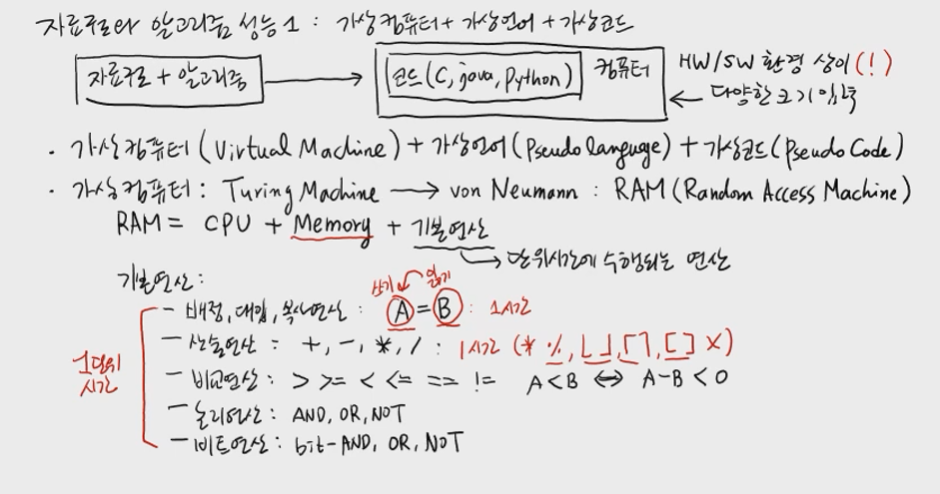 자료구조와 알고리즘 성능 1 : 가상컴퓨터 + 가상언어 + 가상코드
자료구조 + 알고리즘 → 코드(C, java, Python) 컴퓨터 HW/SW 환경 상이 (!)
← 다양한 크기 입력
· 가상컴퓨터 (Virtual Machine) + 가상언어 (Pseudo Language) + 가상코드 (Pseudo Code)
· 가상컴퓨터 : Turing Machine → von Neumann : RAM (Random Access Machine)
RAM = CPU + Memory + 기본연산
→ 단위시간에 수행되는 연산
기본연산 :
쓰기 읽기
- 배정, 대입, 복사연산 : A = B : 1시간
- 산술연산 : +, -, *, / : 1시간 (* %, ⌊ ⌋, ⌈ ⌉, [ ] X)
1단위
시간
- 비교연산 : > >= < <= == != A<B ⇔ A-B < 0
- 논리연산 : AND, OR, NOT
- 비트연산 : bit-AND, OR, NOT